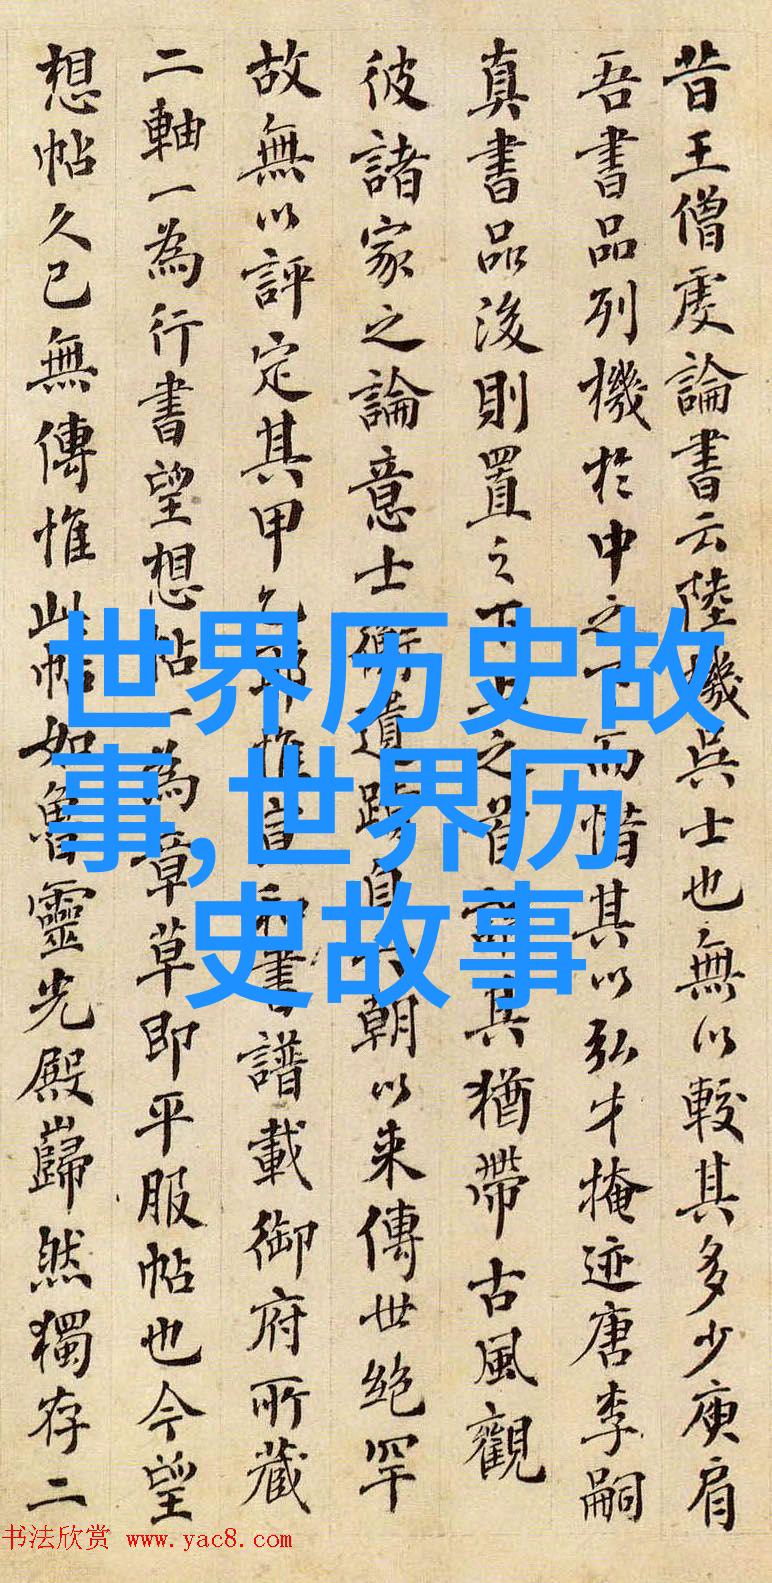 昔王僧虔論書云陸機吳士也無以較其多少庾肩
吾書品列機於中之下而惜其以弘才掩迹唐李嗣
真書品後則置之下上之首謂其猶帶古風觀
彼諸家之論意士衡遺蹟自六朝以来傳世絶罕
故無以評定其甲乙耶惟宣和書譜載御府所藏
二軸一為行書望想帖一為章草即平服帖也今望
想帖久已無傳惟此帖如魯靈光殿巋然獨存二
世界历史故
事,世界历
史故事
书法欣赏 www.yac8.com